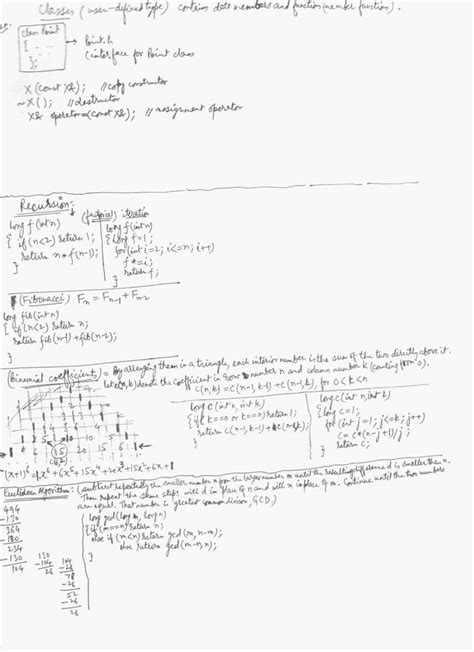 Classes (user-defined type) contains data members and function (member function).
class Point
{ - - -
};
→ Point.h
(interface for Point class
X (const X&); //copy constructor
~X(); //destructor
X& operator=(const X&); //assignment operator
Recursion:
(factorial) iteration
long f(int n)
{ if (n<2) return 1;
return n*f(n-1);
}
long f(int n)
{ long f=1;
for (int i=2; i<=n; i++)
f *= i;
return f;
}
(Fibonacci) Fn = Fn-1 + Fn-2
long fib(int n)
{ if (n<2) return n;
return fib(n-1)+fib(n-2);
}
(Binomial coefficient) = By arranging them in a triangle, each interior number is the sum of the two directly above it.
let c(n,k) denote the coefficient in row number n and column number k (counting from 0).
c(n,k) = c(n-1, k-1) + c(n-1, k), for 0<k<n
long c(int n, int k)
{ if (k==0 or k==n) return 1;
return c(n-1,k-1)+c(n-1,k);
}
long c(int n, int k)
{ long c=1;
for (int j=1; j<=k; j++)
c = c*(n-j+1)/j;
return c;
}
Euclidean Algorithm: (subtract repeatedly the smaller number n from the larger number m until the resulting difference d is smaller than n.
Then repeat the same steps with d in place of n and with n in place of m. Continue until the two numbers
are equal. That number is greatest common divisor, GCD.)
long gcd(long m, long n)
{ if (m==n) return n;
else if (m<n) return gcd(m, n-m);
else return gcd(m-n, n);
}
494
-130
364
-130
234
-130
104
130
-104
26
104
-26
78
-26
52
-26
26